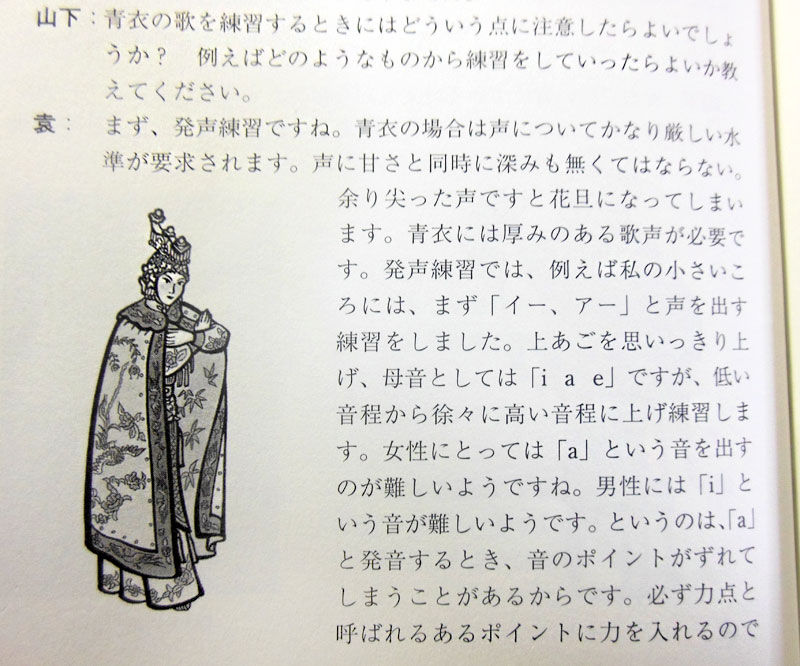 山下：青衣の歌を練習するときにはどういう点に注意したらよいでしょ
うか？　例えばどのようなものから練習をしていったらよいか教
えてください。
袁：　まず、発声練習ですね。青衣の場合は声についてかなり厳しい水
準が要求されます。声に甘さと同時に深みも無くてはならない。
余り尖った声ですと花旦になってしまい
ます。青衣には厚みのある歌声が必要で
す。発声練習では、例えば私の小さいこ
ろには、まず「イー、アー」と声を出す
練習をしました。上あごを思いっきり上
げ、母音としては「i a e」ですが、低い
音程から徐々に高い音程に上げ練習しま
す。女性にとっては「a」という音を出す
のが難しいようですね。男性には「i」と
いう音が難しいようです。というのは、「a」
と発音するとき、音のポイントがずれて
しまうことがあるからです。必ず力点と
呼ばれるあるポイントに力を入れるので